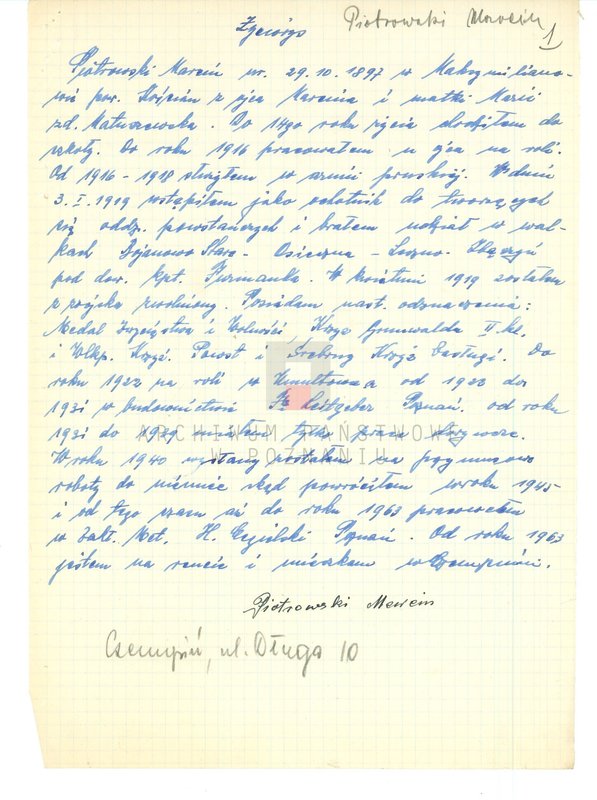 Życiorys Piotrowski Marcin 1
Piotrowski Marcin ur. 29.10.1897 w Maksymiliano-
wie pow. Kościan z ojca Marcina i matki Marii
zd. Matuszewska. Do 14go roku życia chodziłem do
szkoły. Do roku 1916 pracowałem u ojca na roli.
Od 1916 - 1918 służyłem w armii pruskiej. W dniu
3.I.1919 wstąpiłem jako ochotnik do tworzących
się oddz. powstańczych i brałem udział w wal-
kach Bojanowo Stare - Osieczna - Leszno. Zbąszyń
pod dow. kpt. W kwietniu 1919 zostałem
z wojska zwolniony. Posiadam nast. odznaczenia:
Medal Zwycięstwa i Wolności Krzyż Grunwalda II kl.
i Wlkp. Krzyż. Powst i Srebrny Krzyż Zasługi. Do
roku 1922 na roli w od 1922 do
1931 w budownictwie Fa Leitgeber Poznań. od roku
1931 do 1939 tylko praca dorywcza.
W roku 1940 wysłany zostałem na przymusowe
roboty do niemiec skąd powróciłem w roku 1945
i od tego czasu aż do roku 1963 pracowałem
w Zakł. Met. H. Cegielski Poznań. Od roku 1963
jestem na rencie i mieszkam w Czempiniu.
Piotrowski Marcin
Czempiń, ul. Długa 10
ARCHIWUM PAŃSTWOWE
W POZNANIU